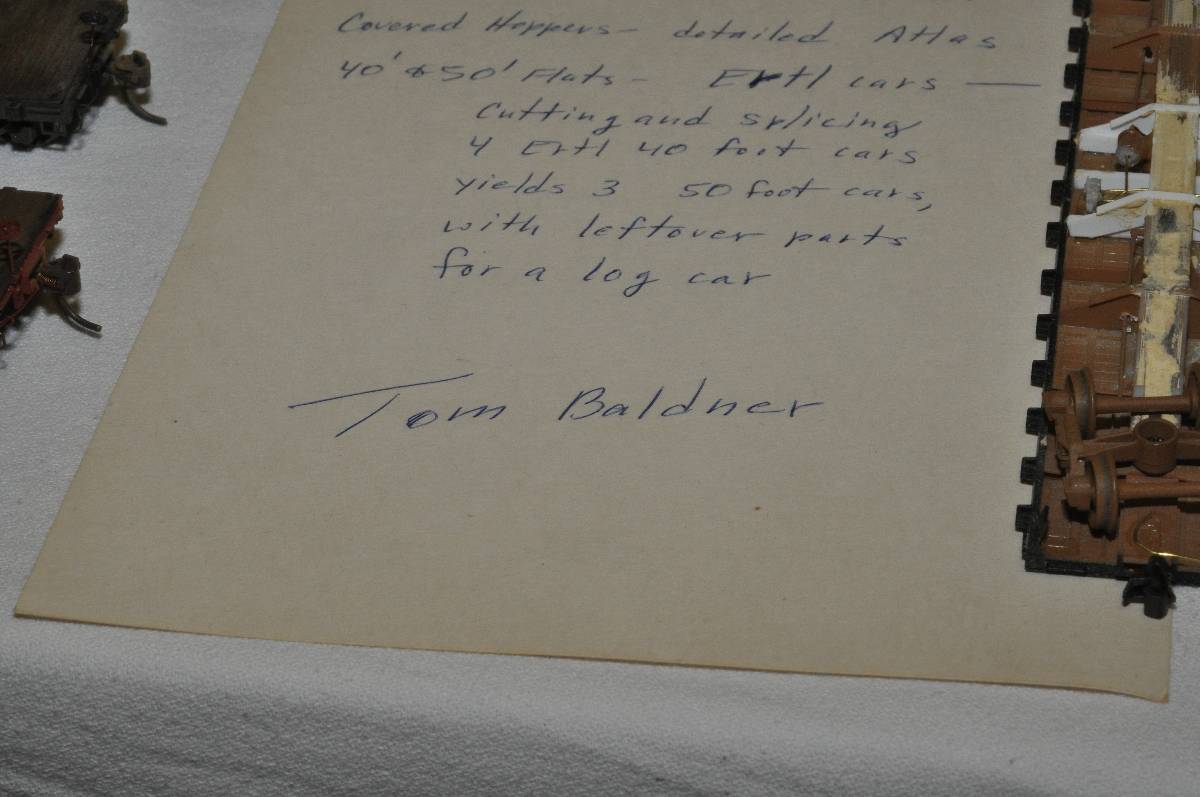 Covered Hoppers - detailed Atlas
40' & 50' Flats - Ertl cars —
Cutting and splicing
4 Ertl 40 foot cars
yields 3 50 foot cars,
with leftover parts
for a log car
Tom Baldner